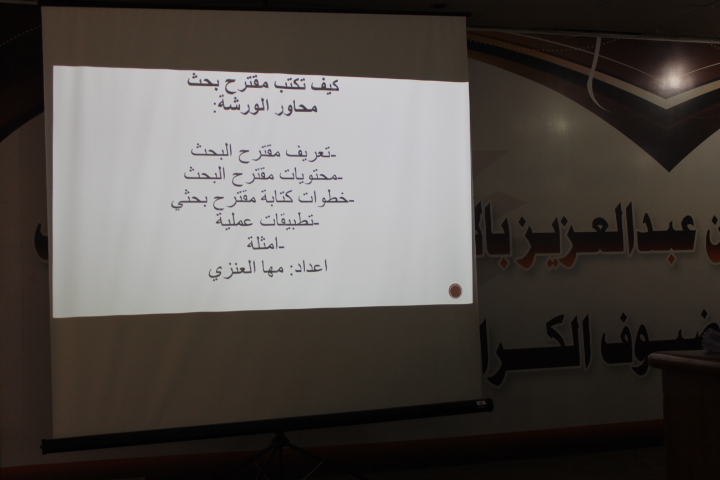 كيف تكتب مقترح بحث
محاور الورشة:
-تعريف مقترح البحث
-محتويات مقترح البحث
-خطوات كتابة مقترح بحثي
-تطبيقات عملية
-امثلة
اعداد: مها العنزي
عبدالعزيز